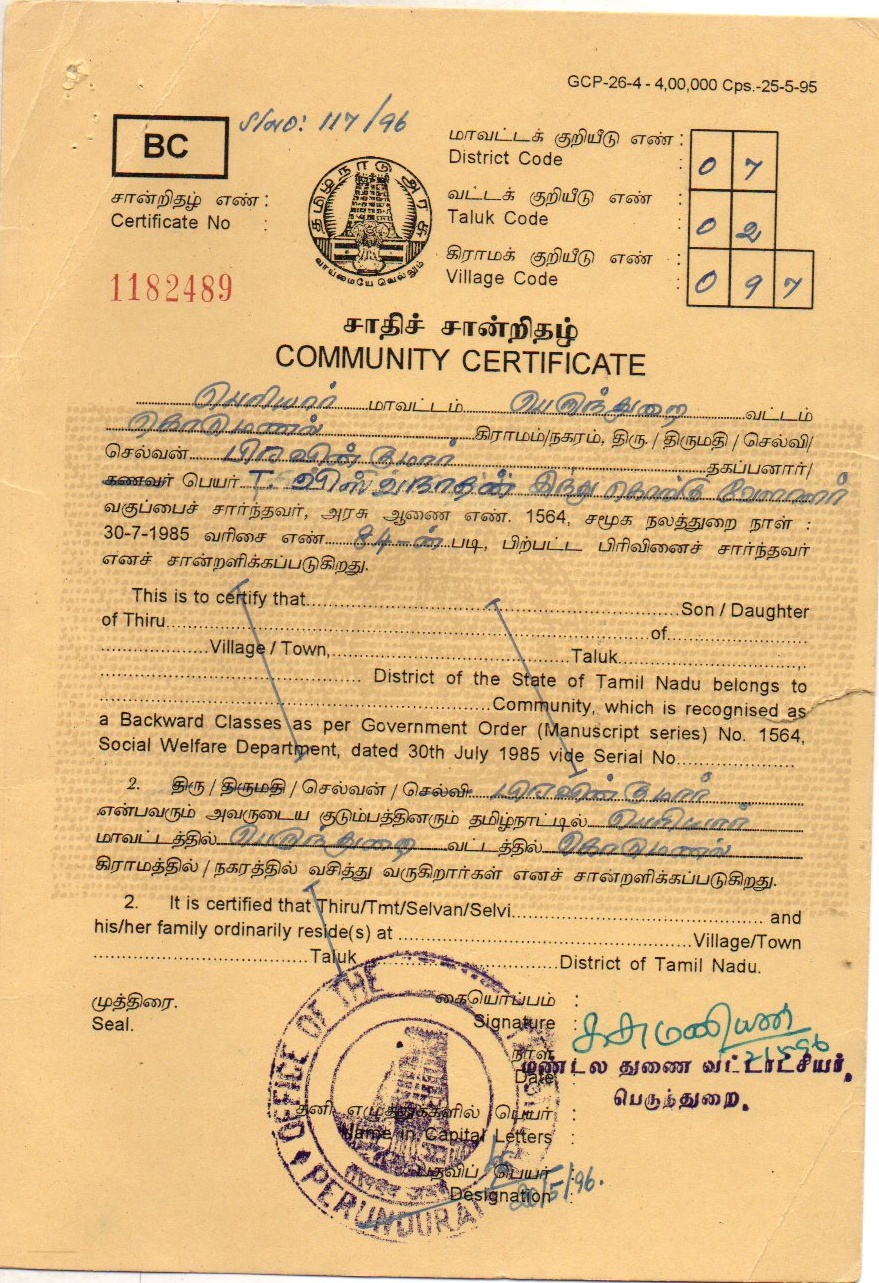 GCP-26-4 - 4,00,000 Cps.-25-5-95
BC
117/96
மாவட்டக் குறியீடு எண் :
District Code :
0 7
சான்றிதழ் எண் :
Certificate No :
தமிழ்நாடு அரசு
வாய்மையே வெல்லும்
வட்டக் குறியீடு எண் :
Taluk Code :
0 2
கிராமக் குறியீடு எண் :
Village Code :
0 9 7
1182489
சாதிச் சான்றிதழ்
COMMUNITY CERTIFICATE
பெரியார் மாவட்டம் பெருந்துறை வட்டம்
கொடுமணல் கிராமம்/நகரம், திரு. / திருமதி / செல்வி/
செல்வன் பிரவின் குமார் தகப்பனார்/
கணவர் பெயர் T. விஸ்வநாதன் இந்து கொங்கு வேளாளர்
வகுப்பைச் சார்ந்தவர், அரசு ஆணை எண். 1564, சமூக நலத்துறை நாள் :
30-7-1985 வரிசை எண் 84-ன் படி, பிற்பட்ட பிரிவினைச் சார்ந்தவர்
எனச் சான்றளிக்கப்படுகிறது.
This is to certify that..........Son / Daughter
of Thiru..........of..........
..........Village / Town,..........Taluk..........,
.......... District of the State of Tamil Nadu belongs to
..........Community, which is recognised as
a Backward Classes as per Government Order (Manuscript series) No. 1564,
Social Welfare Department, dated 30th July 1985 vide Serial No..........
2. திரு / திருமதி / செல்வன் / செல்வி பிரவின் குமார்
என்பவரும் அவருடைய குடும்பத்தினரும் தமிழ்நாட்டில் பெரியார்
மாவட்டத்தில் பெருந்துறை வட்டத்தில் கொடுமணல்
கிராமத்தில் / நகரத்தில் வசித்து வருகிறார்கள் எனச் சான்றளிக்கப்படுகிறது.
2. It is certified that Thiru/Tmt/Selvan/Selvi.......... and
his/her family ordinarily reside(s) at ..........Village/Town
..........Taluk..........District of Tamil Nadu.
முத்திரை.
Seal.
கையொப்பம் :
Signature :
நாள்
Date
மண்டல துணை வட்டாட்சியர்.
பெருந்துறை.
தனி எழுத்துக்களில் பெயர் :
Name in Capital Letters :
பதவிப் பெயர்
Designation :
20/5/96.
OFFICE OF THE
PERUNDURAI